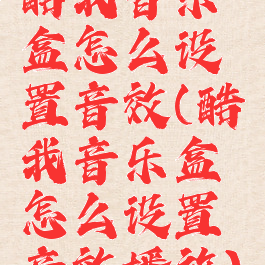 酷我音乐
盒怎么设
置音效(酷
我音乐盒
怎么设置
音效播放)